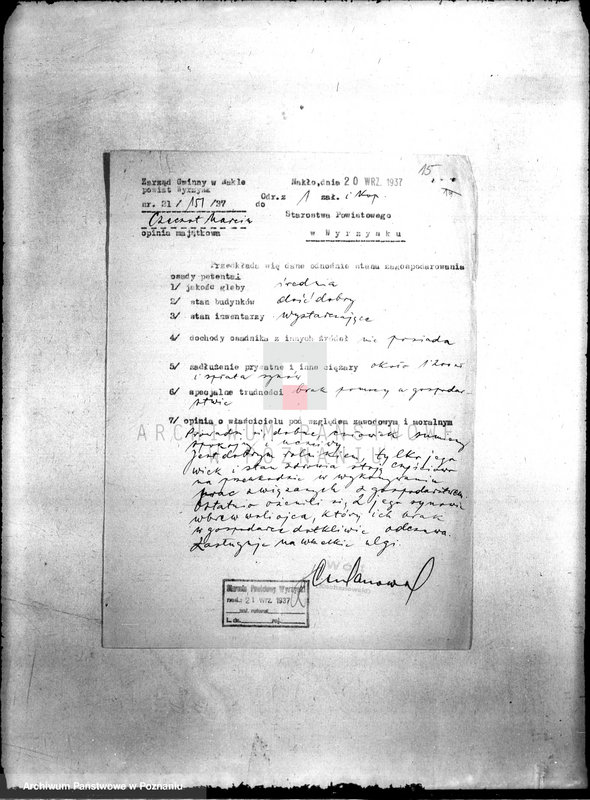 15
Zarząd Gminny w Nakle
powiat Wyrzysk
Nakło, dnia 20 WRZ. 1937
nr. 21/ /37
Odr. z 1 zał. i
do
Starostwa Powiatowego
w Wyrzysku
Marcin
opinia majątkowa
Przedkłada się dane odnośnie stanu zagospodarowania
osady petenta:
1/ jakość gleby średnia
2/ stan budynków dość dobry
3/ stan inwentarzy wystarczające
4/ dochody osadnika z innych źródeł nie posiada
5/ zadłużenie prywatne i inne ciężary około 1200 zł
i spłata synów
6/ specjalne trudności brak pomocy w gospodar-
stwie
7/ opinia o właścicielu pod względem zawodowym i moralnym
Prowadzi się dobrze, człowiek sumienny
spokojny i uczciwy.
Jest dobrym rolnikiem, tylko jego
wiek i stan zdrowia stoją częściowo
na przeszkodzie w wykonywaniu
prac związanych z gospodarstwem.
Ostatnio ożenili się 2 jego synowie
wbrew woli ojca, który ich brak
w gospodarce dotkliwie odczuwa.
Zasługuje na wszelkie ulgi.
Wójt
Starostwo Powiatowe Wyrzyski
nad. 21 WRZ. 1937
zał. referat
L. dz. Rej.
ARCHIWUM PAŃSTWOWE
W POZNANIU
Archiwum Państwowe w Poznaniu